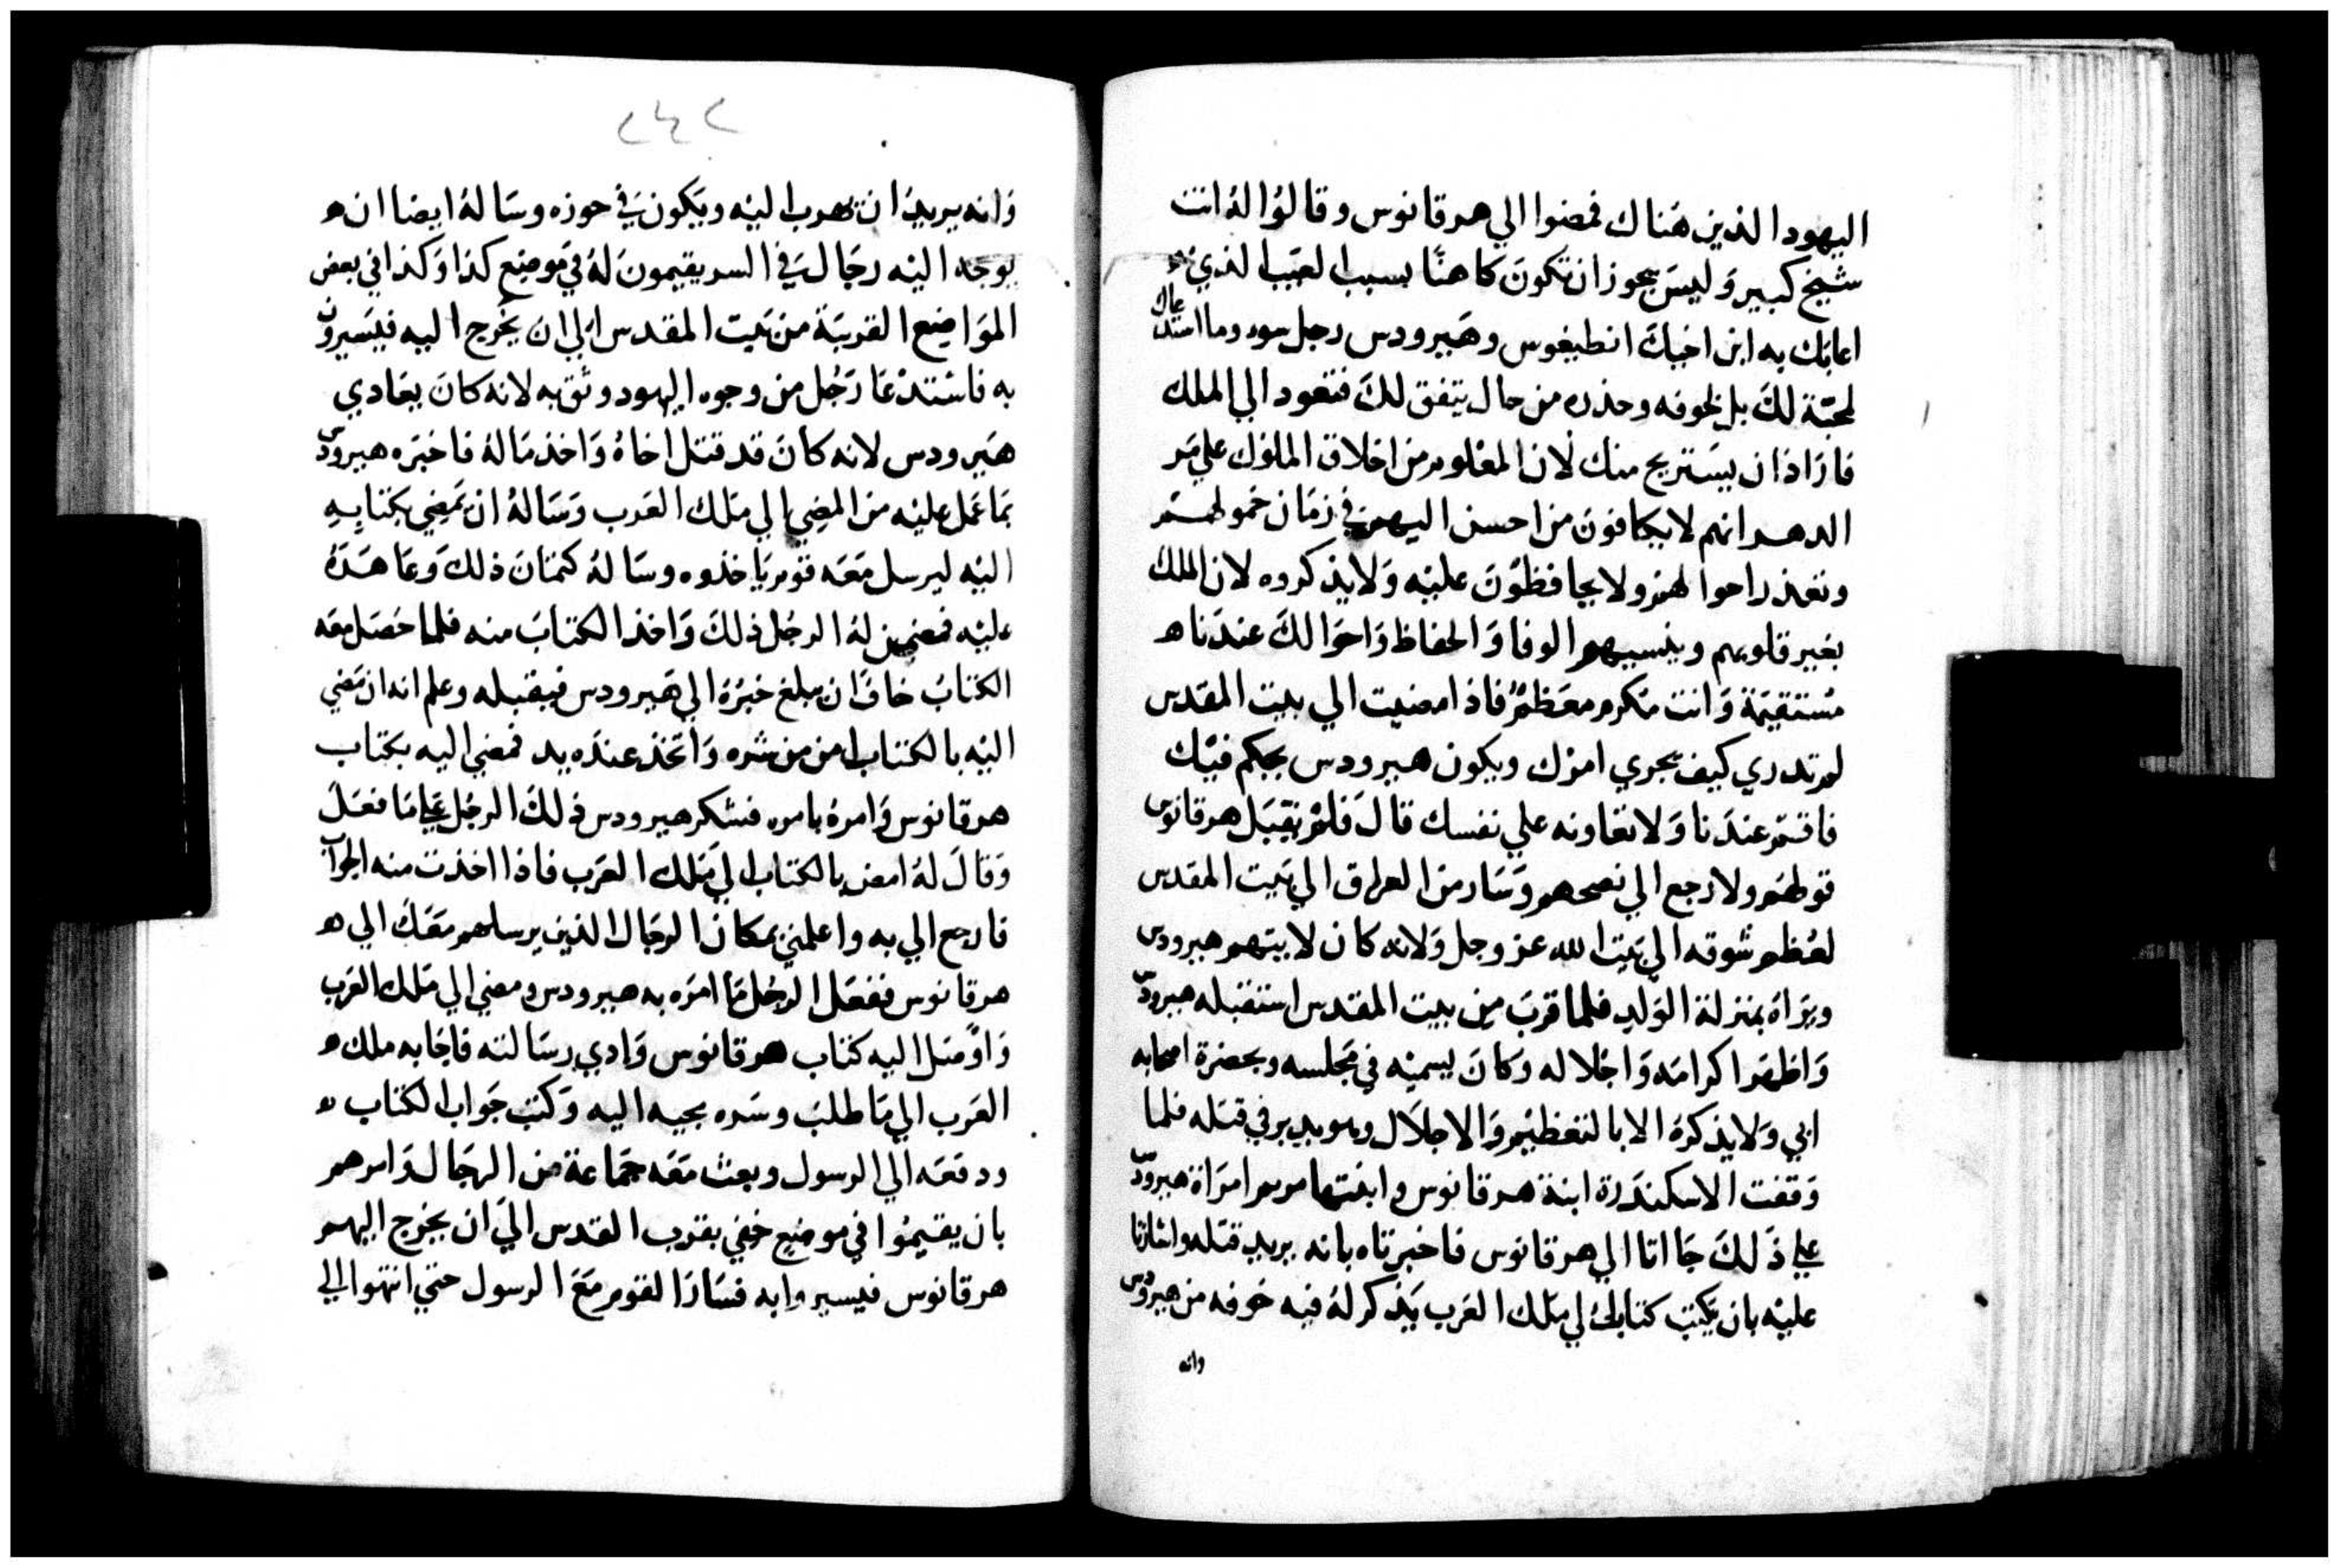 اليهود الذين هناك فمضوا الي هرقانوس وقالوا له انت
شيخ كبير وليس يجوز ان تكون كاهنا بسبب العيب الذي
اعابك به ابن اخيك انطيغوس وهيرودس رجل سوء وما استدعاك
لمحبة لك بل لخوفه وحذره من حال يتفق لك فتعود الي الملك
فاراد ان يستريح منك لان المعلوم من اخلاق الملوك علي مر
الدهر انهم لا يكافون من احسن اليهم في زمان خمولهم
ولا يحافظون عليه ولا يذكروه لان الملك
يغير قلوبهم وينسيهم الوفا والحفاظ واحوالك عندنا
مستقيمة وانت مكرم معظم فاذا مضيت الي بيت المقدس
لم تدري كيف يجري امرك ويكون هيرودس يحكم فيك
فاقم عندنا ولا تعاونه علي نفسك قال فلم يقبل هرقانوس
قولهم ولا رجع الي نصحهم وسار من العراق الي بيت المقدس
لعظم شوقه الي بيت الله عز وجل ولانه كان لا يتهم هيرودس
ويراه بمنزلة الولد فلما قرب من بيت المقدس استقبله هيرودس
واظهر اكرامه واجلاله وكان يسميه في مجلسه وبحضرة اصحابه
ابي ولا يذكره الا بالتعظيم والاجلال وهو يدبر في قتله فلما
وقفت الاسكندرة ابنة هرقانوس وابنتها مريم امراة هيرودس
علي ذلك جااتا الي هرقانوس فاخبرتاه بانه يريد قتله واشارتا
عليه بان يكتب كتابا الي ملك العرب يذكر له فيه خوفه من هيرودس
وانه
٢٤٢
وانه يريد ان يهرب اليه ويكون في حوزه وساله ايضا ان
يوجه اليه رجال في السر يقيمون له في موضع كذا وكذا في بعض
المواضع القريبة من بيت المقدس الي ان يخرج اليه فيسيرون
به فاستدعا رجل من وجوه اليهود وثق به لانه كان يعادي
هيرودس لانه كان قد قتل اخاه واخذ ماله فاخبره هيرودس
بما عمل عليه من المضي الي ملك العرب وساله ان يمضي بكتابه
اليه ليرسل معه قوم ياخذوه وساله كتمان ذلك وعاهده
عليه فضمن له الرجل ذلك واخذ الكتاب منه فلما حصل معه
الكتاب خاف ان يبلغ خبره الي هيرودس فيقتله وعلم انه ان مضي
اليه بالكتاب امن من شره واتخذ عنده يد فمضي اليه بكتاب
هرقانوس وامره بامره فشكر هيرودس ذلك الرجل علي ما فعل
وقال له امض بالكتاب الي ملك العرب فاذا اخذت منه الجواب
فارجع الي به واعلمني بمكان الرجال الذين يرسلهم معك الي
هرقانوس ففعل الرجل ما امره به هيرودس ومضي الي ملك العرب
واوصل اليه كتاب هرقانوس وادي رسالته فاجابه ملك
العرب الي ما طلب وسره بجيه اليه وكتب جواب الكتاب
ودفعه الي الرسول وبعث معه جماعة من الرجال وامرهم
بان يقيموا في موضع خفي بقرب القدس الي ان يخرج اليهم
هرقانوس فيسيروا به فسار القوم مع الرسول حتي انتهوا الي